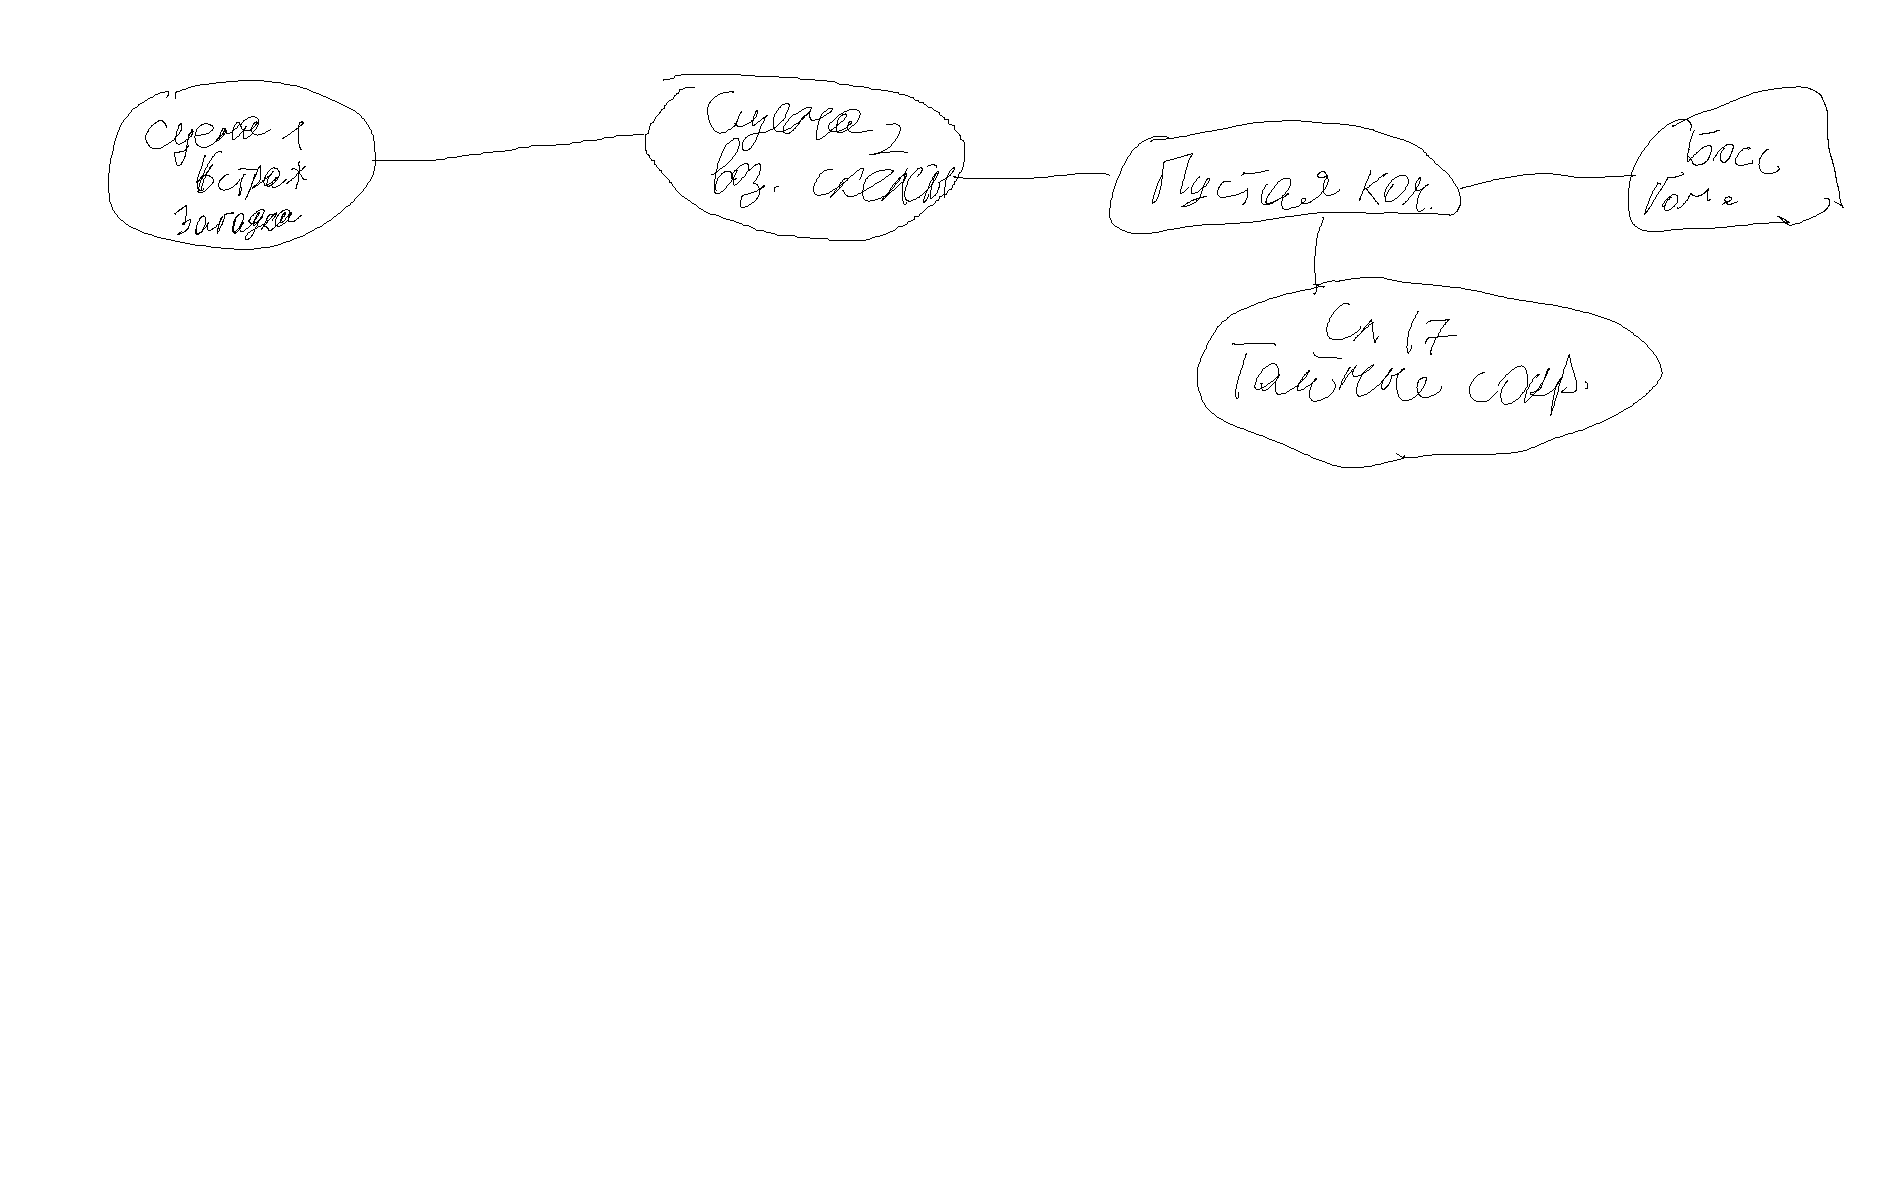 сцена 1
встраж
загадка
Сцена 2
воз. скелеты
Пустая ком.
Босс
Сл 17
Тайные сокр.